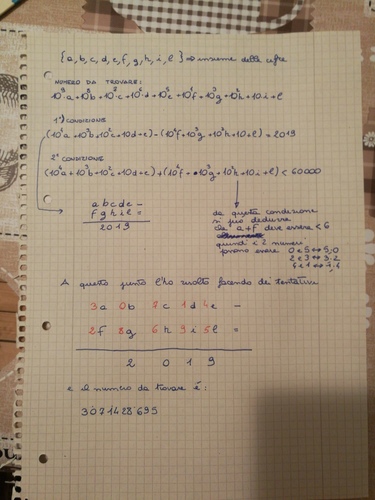 {a, b, c, d, e, f, g, h, i, l } => insieme delle cifre
NUMERO DA TROVARE:
10⁹a + 10⁸b + 10⁷c + 10⁶d + 10⁵e + 10⁴f + 10³g + 10²h + 10i + l
1ª) CONDIZIONE
(10⁴a + 10³b + 10²c + 10d + e) - (10⁴f + 10³g + 10²h + 10 + l) = 2019
2ª CONDIZIONE
(10⁴a + 10³b + 10²c + 10d + e) + (10⁴f + 10³g + 10²h + 10i + l) < 60000
a b c d e -
f g h i l =
2 0 1 9
da questa condizione
si può dedurre
che a + f deve essere < 6
quindi i 2 numeri
possono essere 0 e 5 ↔ 5,0
2 e 3 ↔ 3,2
4 e 1 ↔ 1,4
A questo punto l'ho risolto facendo dei tentativi
3a 0b 7c 1d 4e -
2f 8g 6h 9i 5l =
2 0 1 9
e il numero da trovare è:
3071428695